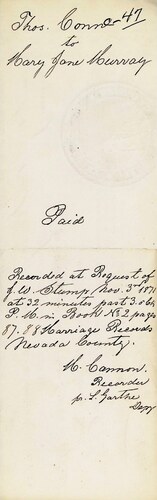 Thos. Conner 47
to
Mary Jane Murray
Paid
Recorded at Request of
J. W. Stump, Nov. 3rd 1871
at 32 minutes past 3. o clk
P. M. in Book No. 2 pages
87. 88 Marriage Records
Nevada County.
M. Cannon
Recorder
p. L. Garthe
Depy